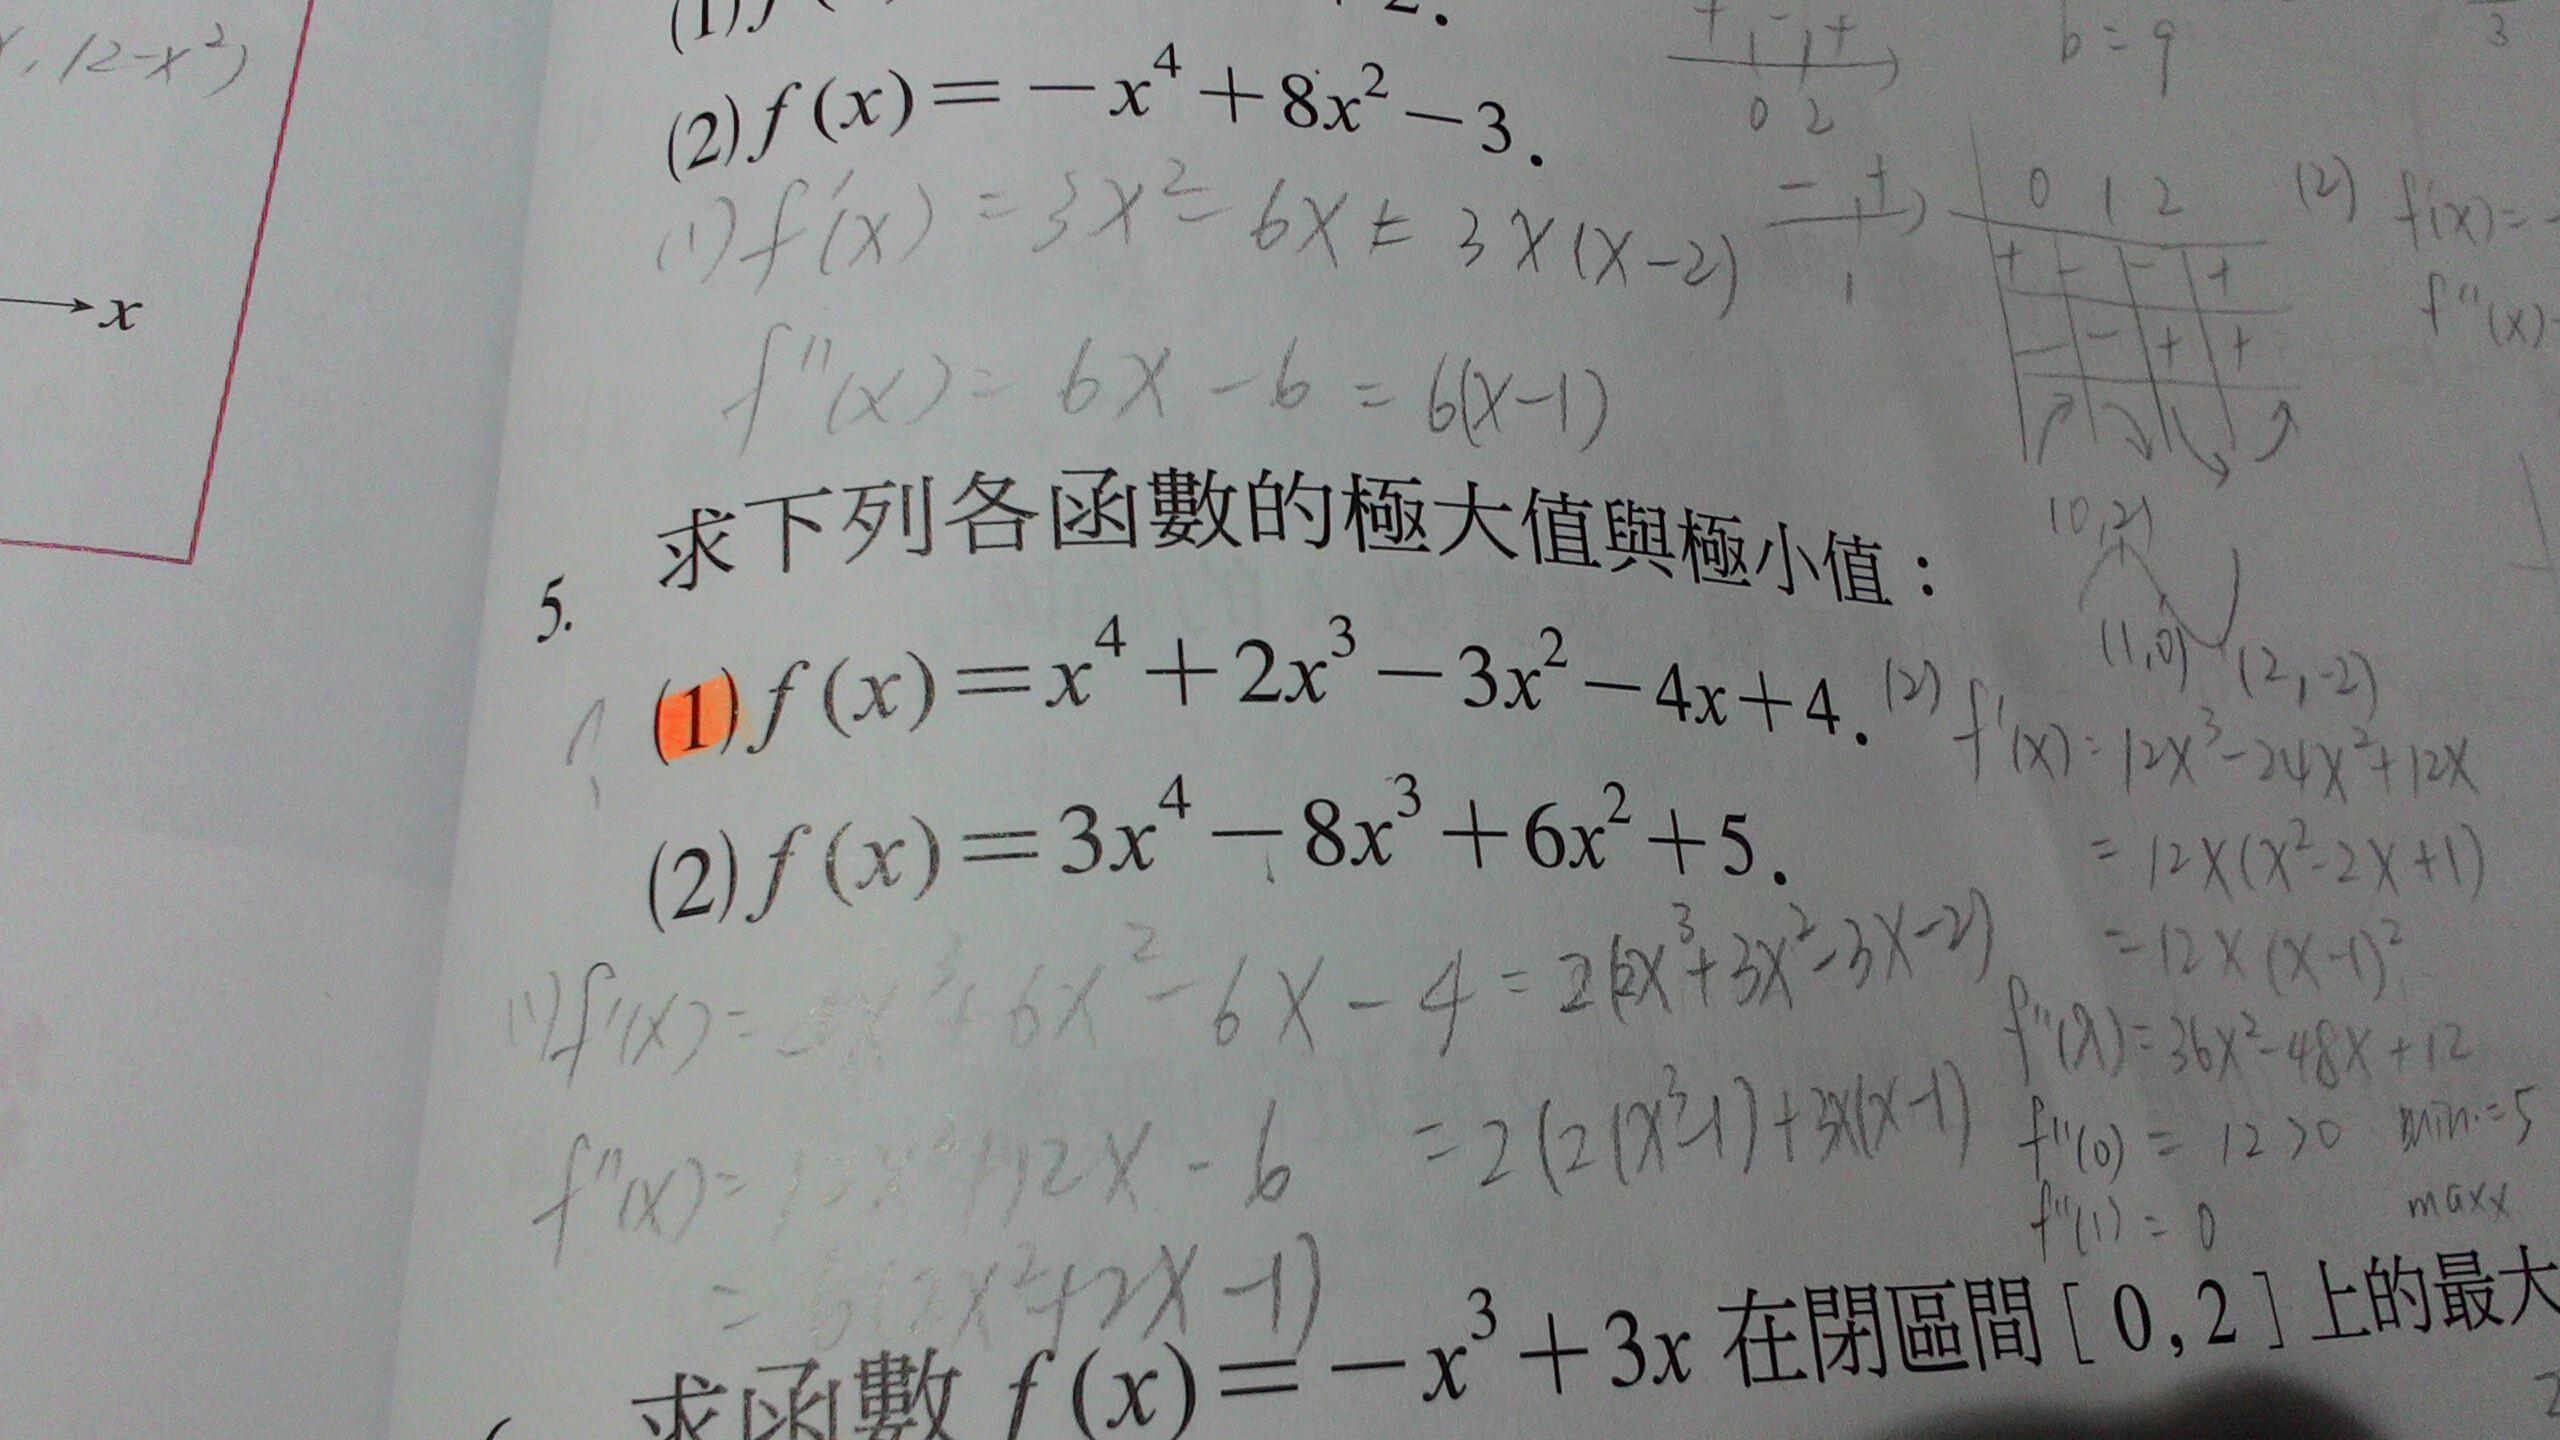 , 12-x²)
x
(2) f(x)=-x⁴+8x²-3.
(1) f'(x) = 3x²-6x = 3x(x-2)
f''(x) = 6x-6 = 6(x-1)
+ - +
0 2
- +
1
b = 9
3
0 1 2
+ - - +
- - + +
(0,2)
(1,0)
(2,-2)
(2) f'(x)=-
f''(x)
5. 求下列各函數的極大值與極小值：
(1) f(x)=x⁴+2x³-3x²-4x+4.
(2) f(x)=3x⁴-8x³+6x²+5.
(1) f'(x)= 4x³+6x²-6x-4 = 2(2x³+3x²-3x-2)
= 2(2(x³-1)+3x(x-1)
f''(x)= 12x²+12x-6
= 6(2x²+2x-1)
(2) f'(x)= 12x³-24x²+12x
= 12x(x²-2x+1)
= 12x(x-1)²
f''(x)= 36x²-48x+12
f''(0) = 12>0 min.=5
f''(1) = 0 max x
求函數 f(x)=-x³+3x 在閉區間[0,2]上的最大